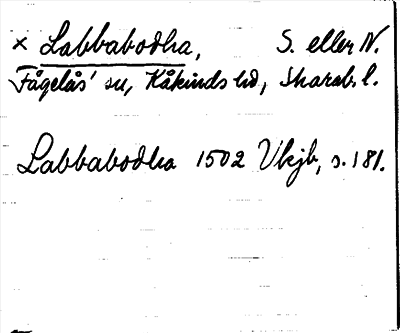 × Labbabodha, S. eller N.
Fågelås' sn, Kåkinds hd, Skarab. l.
Labbabodha 1502 Vkjb, s. 181.